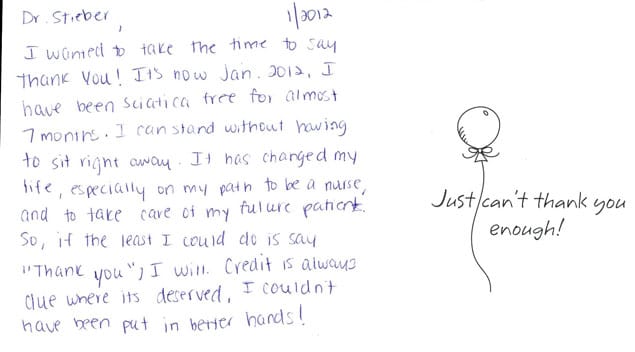 Dr. Stieber,
1/2012
I wanted to take the time to say
thank you! It's now Jan. 2012, I
have been sciatica free for almost
7 months. I can stand without having
to sit right away. It has changed my
life, especially on my path to be a nurse,
and to take care of my future patient.
So, if the least I could do is say
"Thank you", I will. Credit is always
due where its deserved, I couldn't
have been put in better hands!
Just can't thank you
enough!